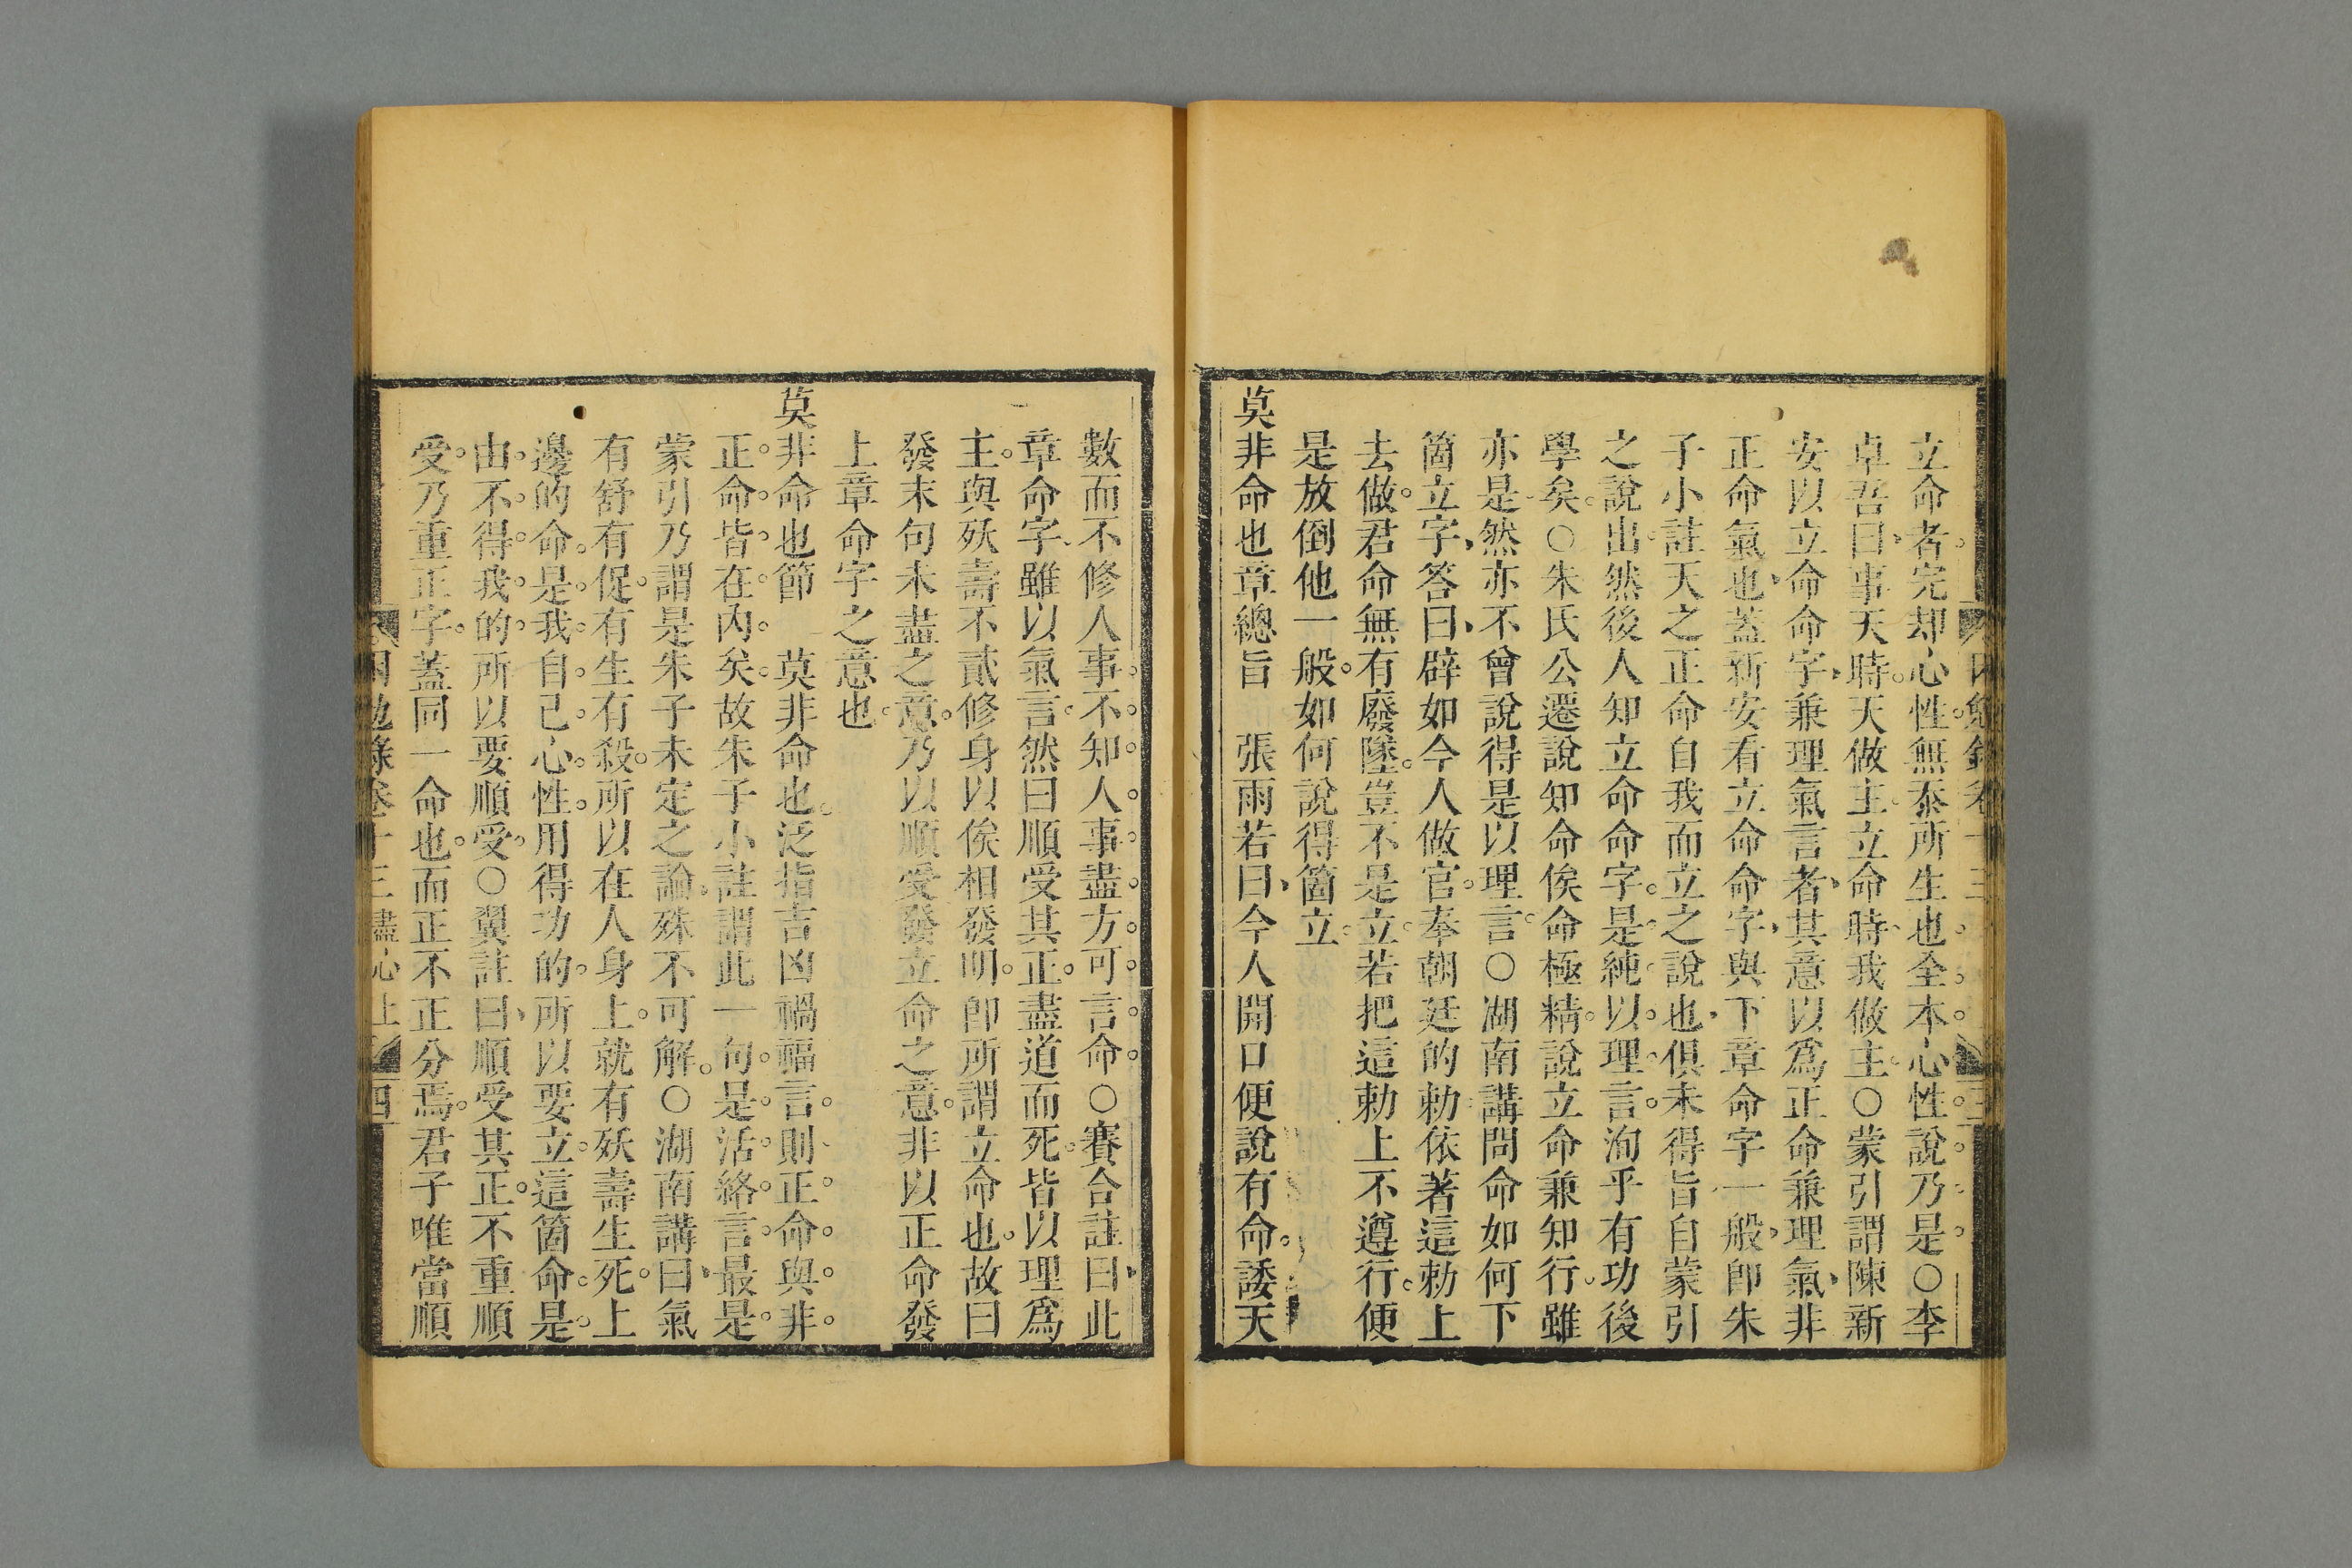 立命者完却心性無忝所生也全本心性說乃是○李
卓吾曰事天時天做主立命時我做主○蒙引謂陳新
安以立命命字兼理氣言者其意以爲正命兼理氣非
正命氣也蓋新安看立命命字與下章命字一般卽朱
子小註天之正命自我而立之說也俱未得旨自蒙引
之說出然後人知立命命字是純以理言洵乎有功後
學矣○朱氏公遷說知命俟命極精說立命兼知行雖
亦是然亦不曾說得是以理言○湖南講問命如何下
箇立字答曰辟如今人做官奉朝廷的勅依著這勅上
去做君命無有廢墜豈不是立若把這勅上不遵行便
是放倒他一般如何說得箇立
莫非命也章總旨 張雨若曰今人開口便說有命諉天
數而不修人事不知人事盡方可言命○賽合註曰此
章命字雖以氣言然曰順受其正盡道而死皆以理爲
主與殀壽不貳修身以俟相發明卽所謂立命也故曰
發末句未盡之意乃以順受發立命之意非以正命發
上章命字之意也
莫非命也節 莫非命也泛指吉凶禍福言則正命與非
正命皆在內矣故朱子小註謂此一句是活絡言最是
蒙引乃謂是朱子未定之論殊不可解○湖南講曰氣
有舒有促有生有殺所以在人身上就有殀壽生死上
邊的命是我自己心性用得功的所以要立這箇命是
由不得我的所以要順受○翼註曰順受其正不重順
受乃重正字蓋同一命也而正不正分焉君子唯當順
困勉錄卷十三盡心上 四